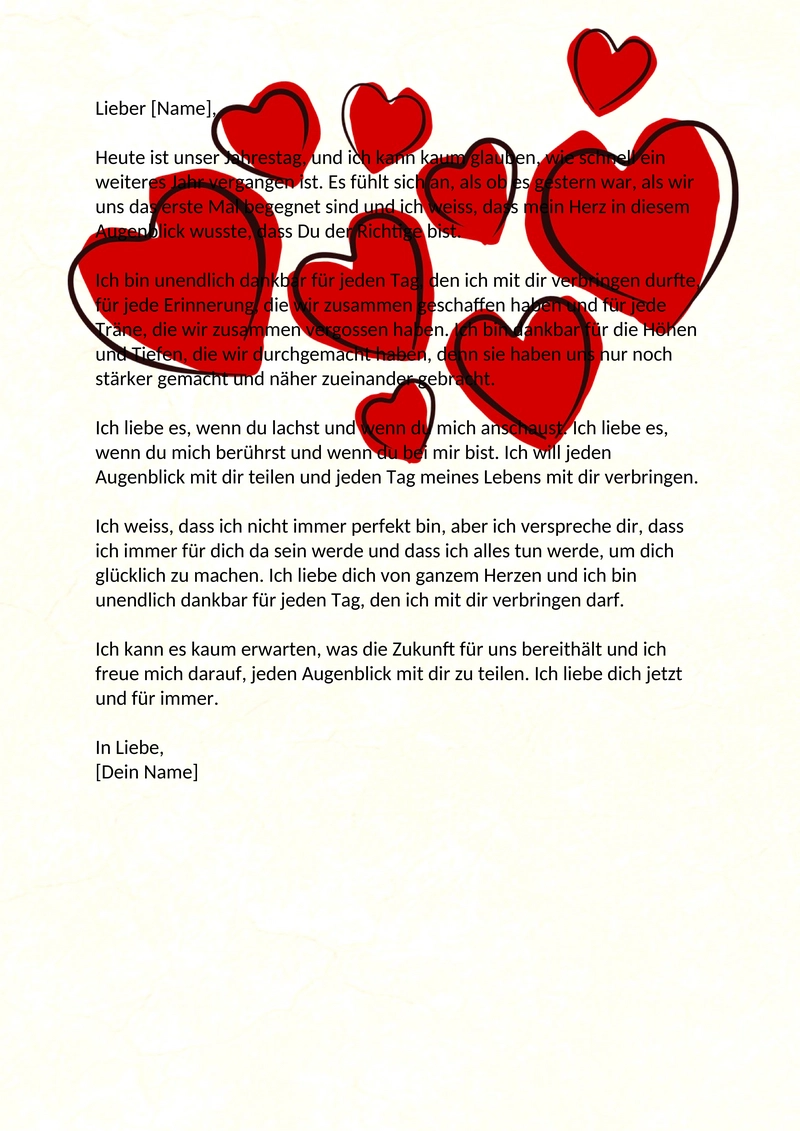 Lieber [Name],
Heute ist unser Jahrestag, und ich kann kaum glauben, wie schnell ein
weiteres Jahr vergangen ist. Es fühlt sich an, als ob es gestern war, als wir
uns das erste Mal begegnet sind und ich weiss, dass mein Herz in diesem
Augenblick wusste, dass Du der Richtige bist.
Ich bin unendlich dankbar für jeden Tag, den ich mit dir verbringen durfte,
für jede Erinnerung, die wir zusammen geschaffen haben und für jede
Träne, die wir zusammen vergossen haben. Ich bin dankbar für die Höhen
und Tiefen, die wir durchgemacht haben, denn sie haben uns nur noch
stärker gemacht und näher zueinander gebracht.
Ich liebe es, wenn du lachst und wenn du mich anschaust. Ich liebe es,
wenn du mich berührst und wenn du bei mir bist. Ich will jeden
Augenblick mit dir teilen und jeden Tag meines Lebens mit dir verbringen.
Ich weiss, dass ich nicht immer perfekt bin, aber ich verspreche dir, dass
ich immer für dich da sein werde und dass ich alles tun werde, um dich
glücklich zu machen. Ich liebe dich von ganzem Herzen und ich bin
unendlich dankbar für jeden Tag, den ich mit dir verbringen darf.
Ich kann es kaum erwarten, was die Zukunft für uns bereithält und ich
freue mich darauf, jeden Augenblick mit dir zu teilen. Ich liebe dich jetzt
und für immer.
In Liebe,
[Dein Name]